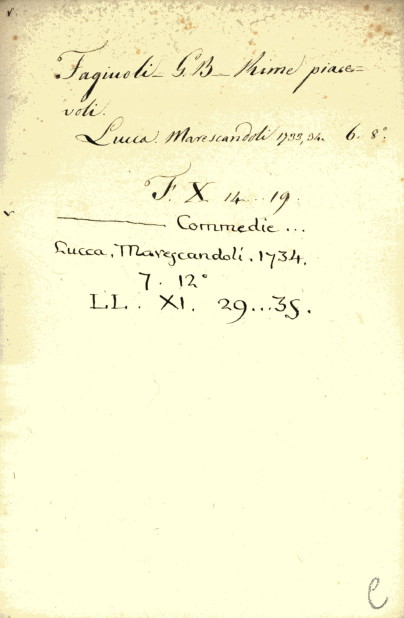 Fagiuoli_ G.B_ Rime piace=
voli.
Lucca. Marescandoli 1733,34. 6. 8°
F. X. 14...19.
Commedie...
Lucca. Marescandoli. 1734.
7. 12°
LL. XI. 29...35.
e